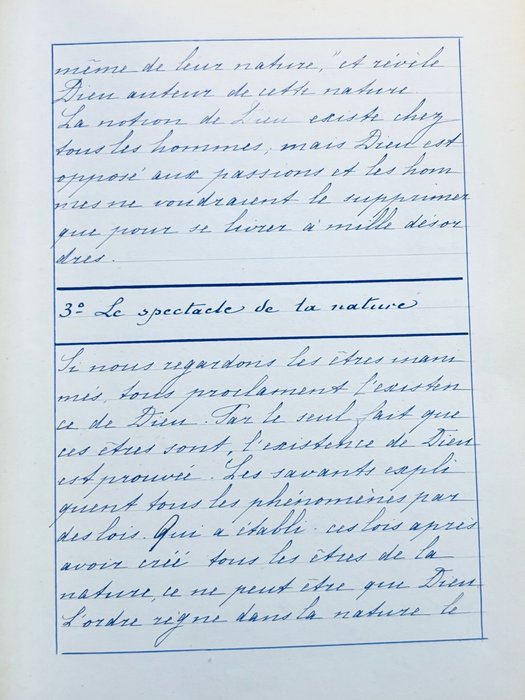 même de leur nature," et révèle
Dieu auteur de cette nature
La notion de Dieu existe chez
tous les hommes, mais Dieu est
opposé aux passions et les hom
mes ne voudraient le supprimer
que pour se livrer à mille désor
dres.
3º Le spectacle de la nature
Si nous regardons les êtres inani
més, tous proclament l'existen
ce de Dieu. Par le seul fait que
ces êtres sont, l'existence de Dieu
est prouvée. Les savants expli
quent tous les phénomènes par
des lois. Qui a établi ces lois après
avoir créé tous les êtres de la
nature, ce ne peut être que Dieu
L'ordre règne dans la nature le